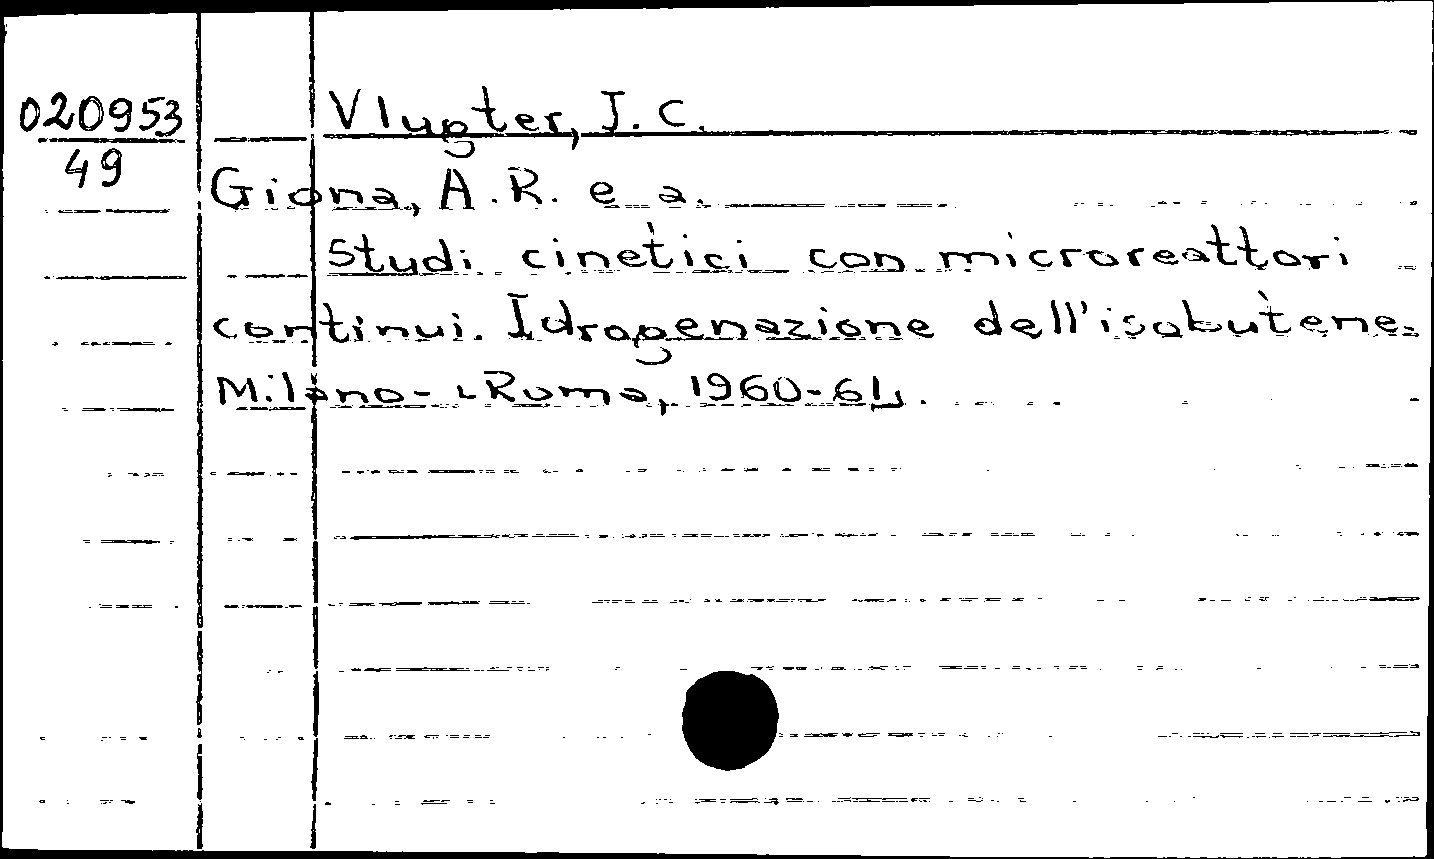 020953
49
Vlugter, J. C.
Giona, A. R. e a.
Studi cinetici con microreattori
continui. Idrogenazione dell'isobutene.
Milano - Roma, 1960-61.